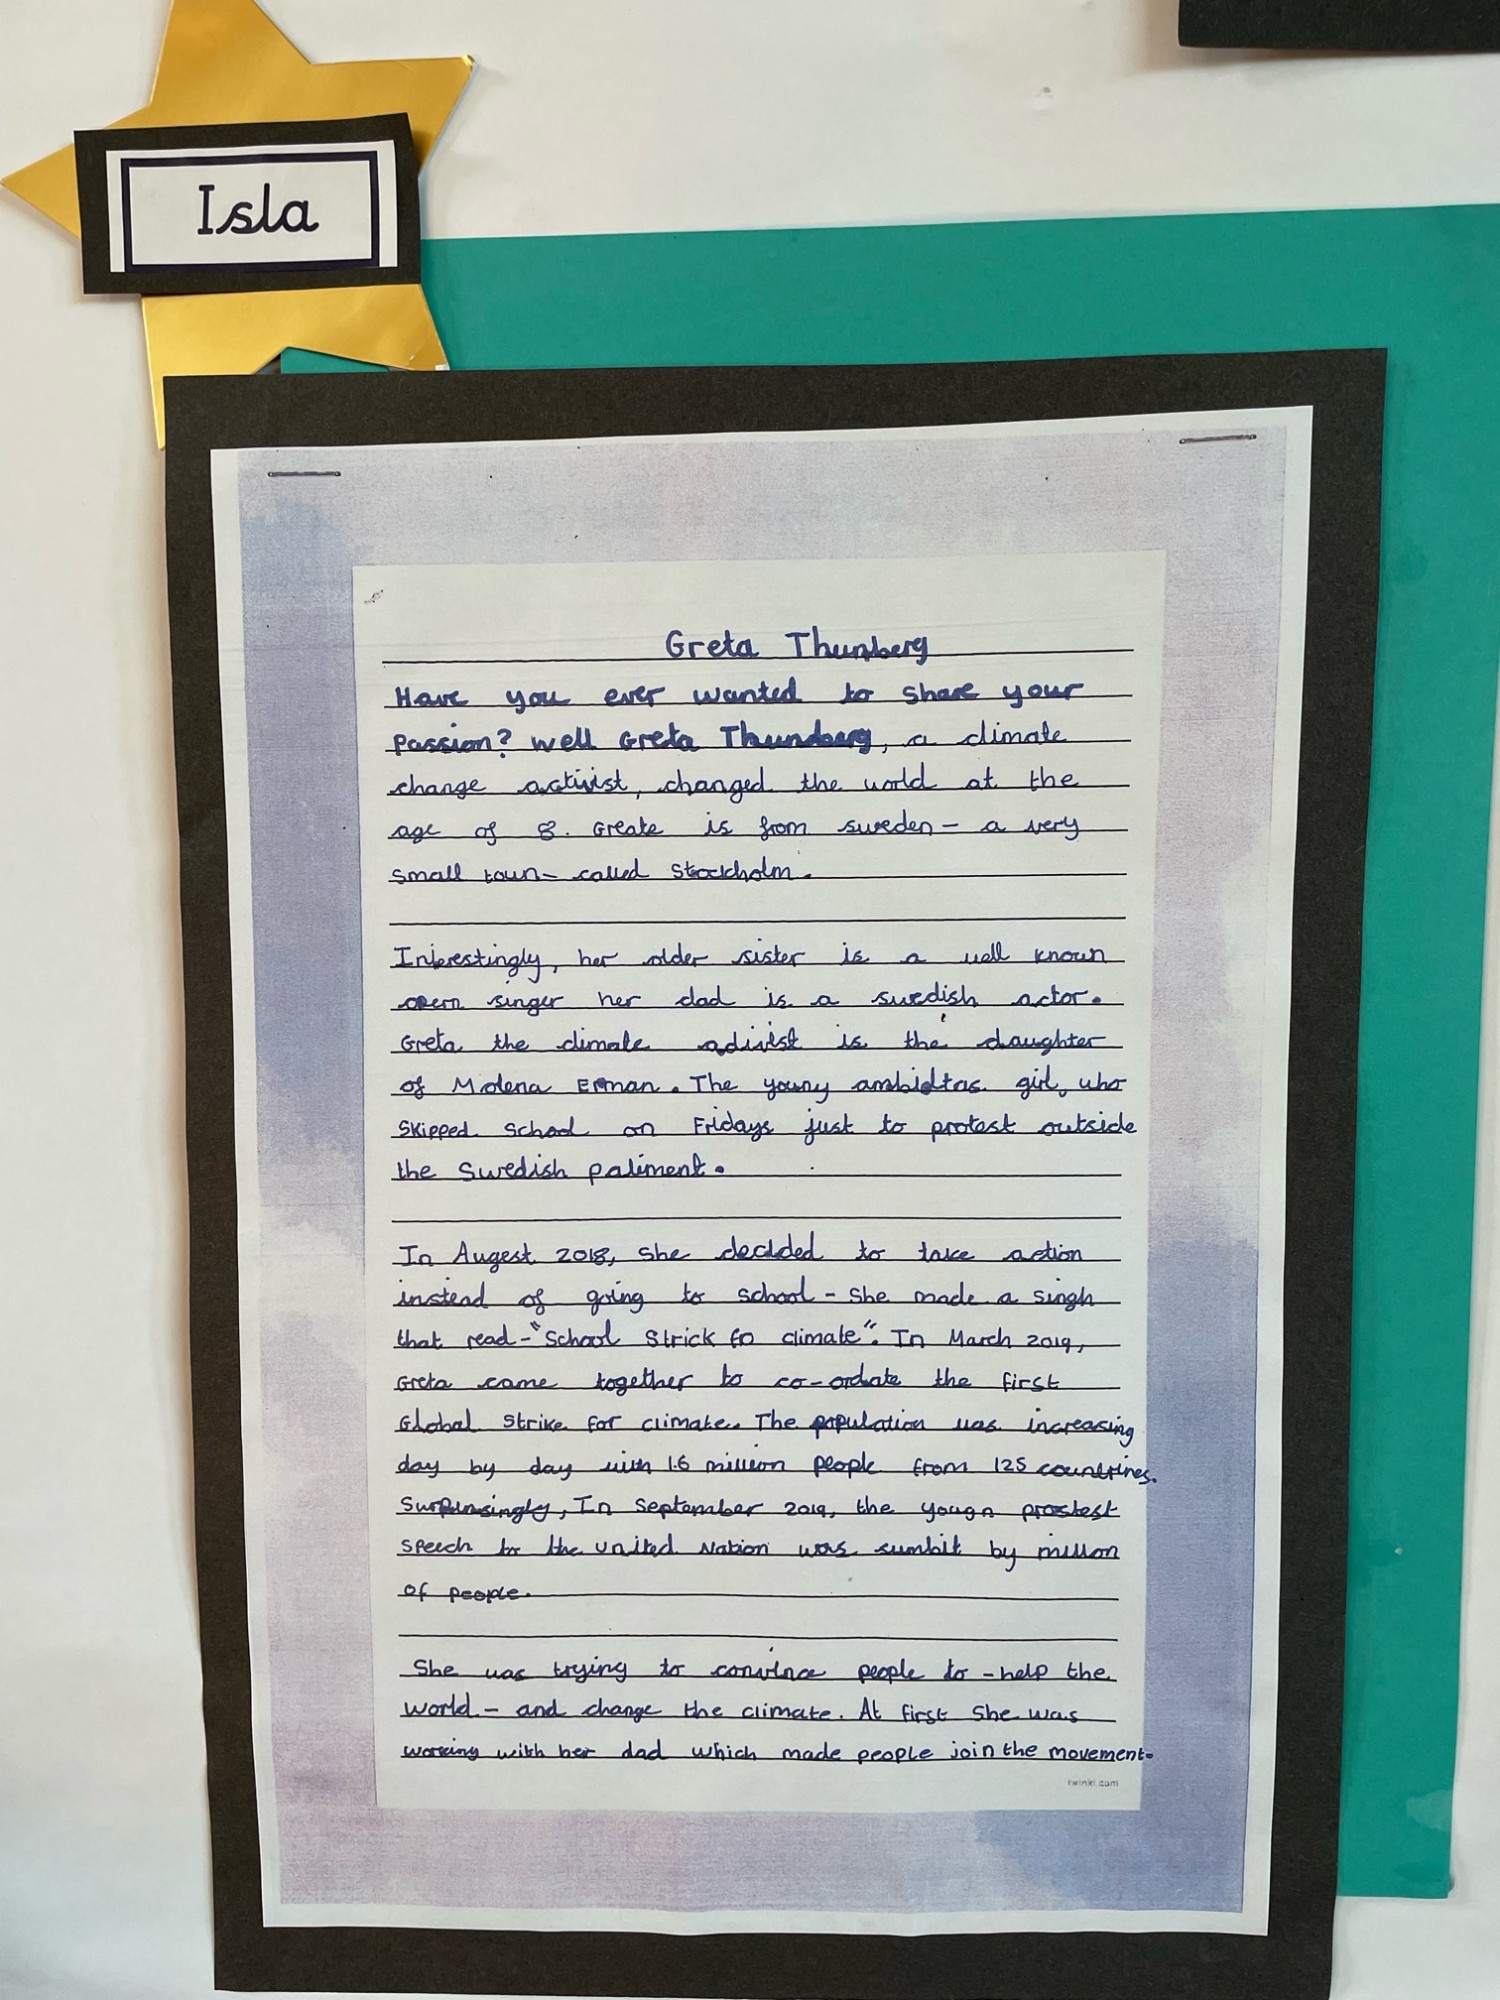 Isla
Greta Thunberg
Have you ever wanted to share your
Passion? well Greta Thunberg, a climate
change activist, changed the world at the
age of 8. Greate is from sweden - a very
small town - called Stockholm.
Interestingly, her older sister is a well known
opern singer her dad is a swedish actor.
Greta the climate adivist is the daughter
of Molena Erman. The young ambidtas girl, who
skipped school on Fridays just to protest outside
the Swedish paliment.
In Augest 2018, she decided to take action
instead of going to school - She made a singh
that read - "School Strick fo climate". In March 2019,
Greta came together to co-ordate the first
Global strike for climate. The population was increasing
day by day with 1.6 million people from 125 countrines.
Surprisingly, In September 2019, the yougn prostest
speech to the united Nation was sumbit by millon
of people.
She was trying to convince people to - help the
world - and change the climate. At first She was
working with her dad which made people join the movement.
twinkl.com